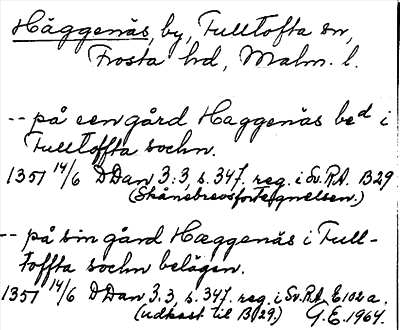 Häggenäs, by, Fulltofta sn,
Frosta hd, Malm. l.
-- på een gård Haggenäs bed i
Fulltoffta sochn.
1351 14/6 DDan 3:3, s. 347. reg. i Sv.RA. B29
(Skånebrevsfortegnelsen.)
-- på sin gård Hæggenäs i Full-
toffta sochn belägen.
1351 14/6 DDan 3.3, s. 347. reg. i Sv.RA. E102a.
(udkast til B29.) G.E. 1964.